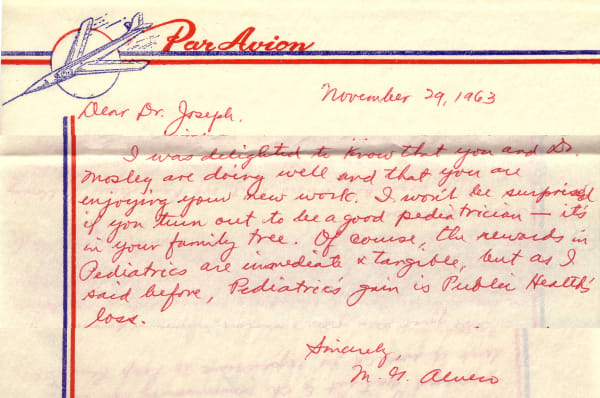 Par Avion
November 29, 1963
Dear Dr. Joseph.
I was delighted to know that you and Dr.
Mosley are doing well and that you are
enjoying your new work. I won't be surprised
if you turn out to be a good pediatrician — it's
in your family tree. Of course, the rewards in
Pediatrics are immediate & tangible, but as I
said before, Pediatric's gain is Public Health's
loss.
Sincerely,
M.